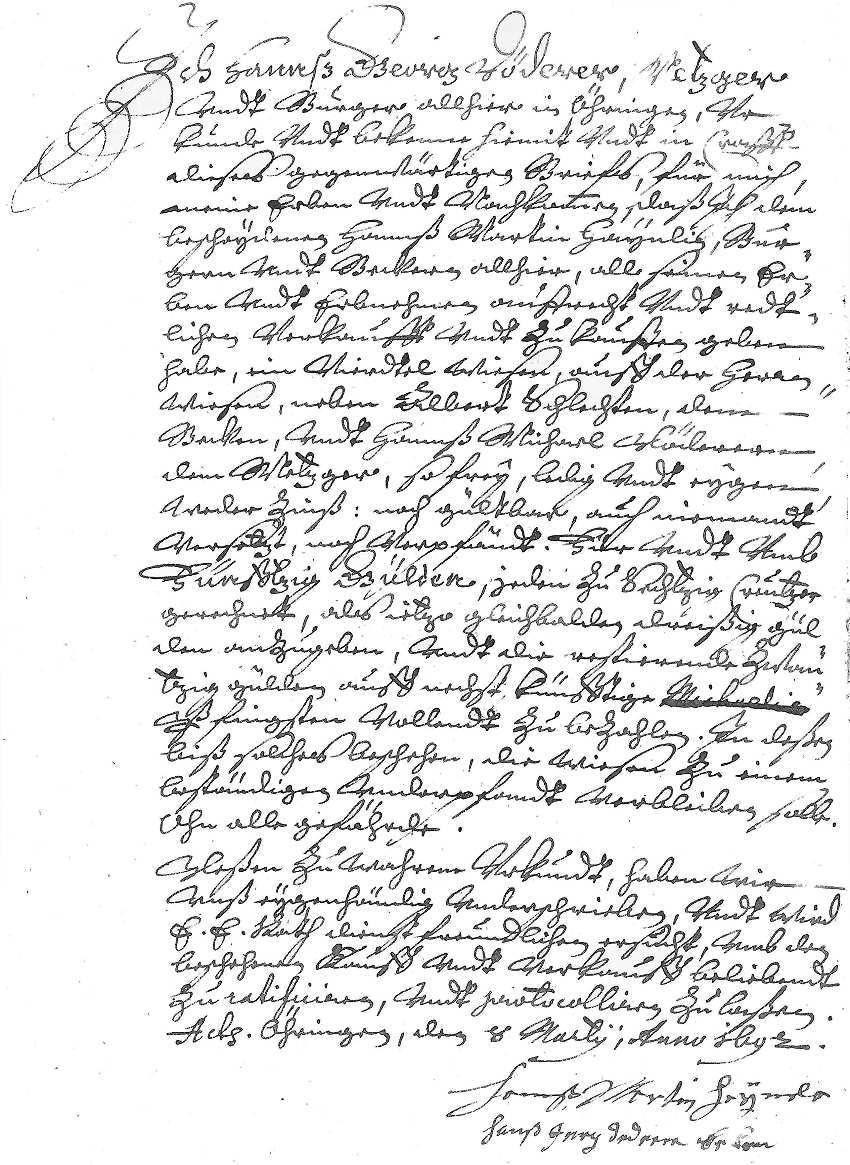 Ich Hannß Georg Röderer, Metzger
Vndt Bürger allhier in Öhringen, Vr
kunde Vndt bekenne hiemit Vndt in Crafft
dieses gegenwärtigen Brieffs, für mich,
meine Erben Vndt Nachkomen, daß Ich dem
bescheydenen Hannß Martin Haÿnlin, Bur-
gern Vndt Beckern allhier, alle seinen Er-
ben Vndt Erbnehmen auffrecht Vndt redt-
lichen Verkaufft Vndt Zu kauffen geben
habe, ein Vierdtel Wiesen, auff der Herrn
Wiesen, neben Albert Schlechten, dem
Becken, Vndt Hannß Michael Röderern
dem Metzger, so frey, ledig Vndt eygen
Weder Zinß: noch gültbar, auch niemandt
Versetzt, noch Verpfändt. Für Vndt Vmb
Fünfftzig Gülden, jeden Zu Sechtzig Creutzer
gerechnet, als ietzo gleichbalden dreißig gül
den anZugeben, Vndt die restierende Zwan-
tzig gülden auff nechst künfftige Michaelis
Pfingsten Vollendt Zu beZahlen. In deßen
biß solches beschehen, die Wiesen Zu einem
beständigen Vnderpfandt Verbleiben solle.
Ohn alle gefährde.
Deßen Zu Wahrem Vrkundt, haben Wir
Vnß eygenhändig Vnderschrieben, Vndt Wird
E. E. Rath dienstfreundlichen ersucht, Vmb den
beschehenen Kauff Vndt Verkauff beliebendt
Zu ratificiren, Vndt protocolliren Zu laßen.
Act. Öhringen, den 8 Martÿ, Anno 1692.
Hanß Martin Heÿnle
hanß Jerg